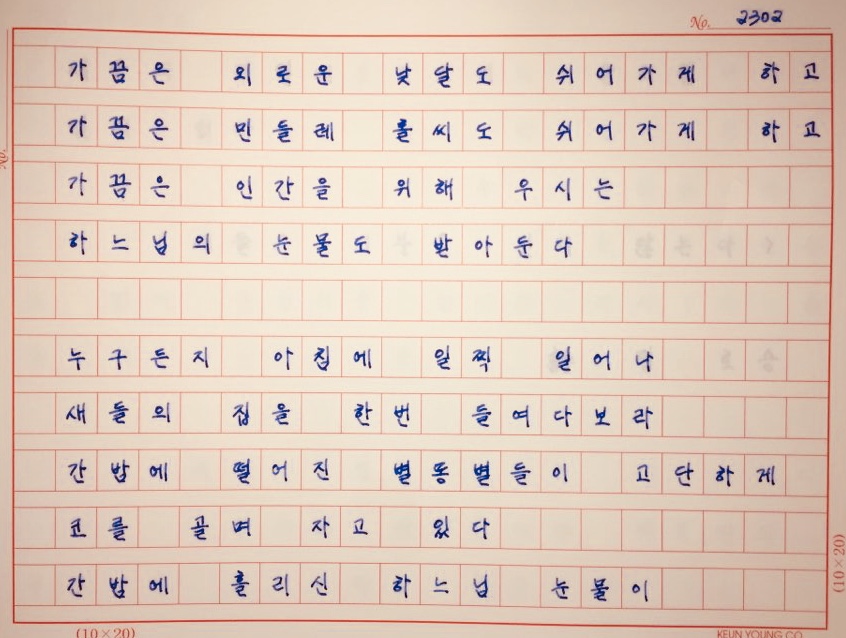 No. 2302
가끔은 외로운 낮달도 쉬어가게 하고
가끔은 민들레 홀씨도 쉬어가게 하고
가끔은 인간을 위해 우시는
하느님의 눈물도 받아둔다
누구든지 아침에 일찍 일어나
새들의 집을 한번 들여다보라
간밤에 떨어진 별똥별들이 고단하게
코를 골며 자고 있다
간밤에 흘리신 하느님 눈물이
(10×20)
KEUN YOUNG CO.
(10×20)
No.